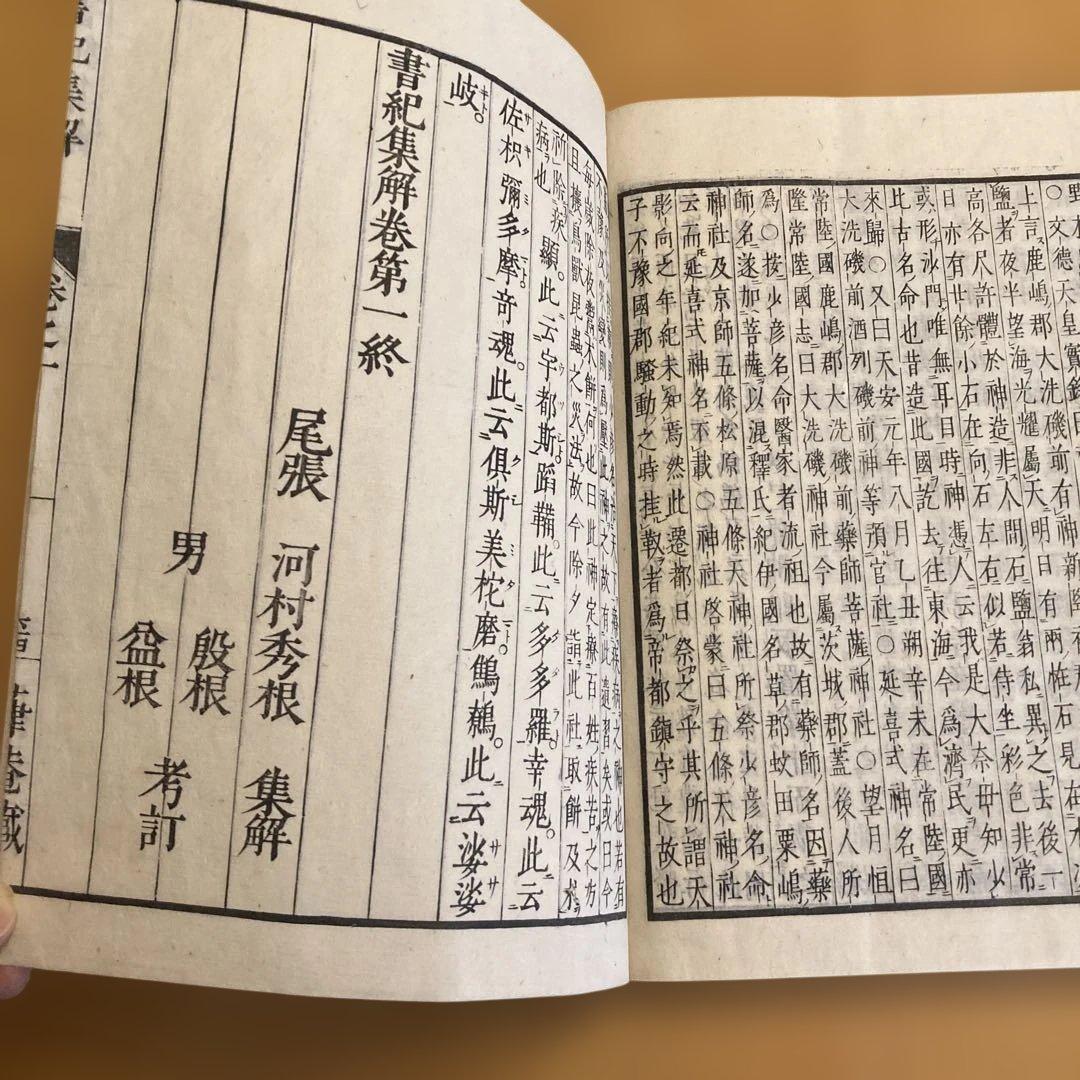 ○文德天皇實錄曰
上言鹿嶋郡大洗磯前有神新
鹽者夜半望海光耀屬天明日有兩恠石見在
高各尺許體於神造非人間石鹽翁私異之去後一
日亦有廿餘小石在向石左右似若侍坐彩色非常
或形沙門唯無耳目時神憑人云我是大奈毋知少
比古名命也昔造此國訖去往東海今為濟民更亦
來歸○又曰天安元年八月乙丑朔辛未在常陸國
大洗磯前酒列磯前神等預官社○延喜式神名曰
常陸國鹿嶋郡大洗磯前藥師菩薩神社○望月恒
隆常陸國志曰大洗磯神社今屬茨城郡蓋後人所
為○按少彦名命醫家者流祖也故有藥師名因藥
師名遂加菩薩以混釋氏紀伊國名草郡蚊田粟嶋
神社及京師五條松原五條天神社所祭少彦名命
云而延喜式神名不載○神社啓蒙曰五條天神社
影向之年紀未知焉然此遷都日祭之乎其所謂天
子不豫國郡騷動之時挂靫者為帝都鎮守之故也
每歲除夜
餅何也曰此神定療百姓疾苦之方
且攘鳥獸昆蟲之災法故今除夕詣此社取餅及朮
祈除疾
病也
顯。此云宇都斯蹈鞴。此云多多羅。幸魂。此云
佐枳彌多摩奇魂。此云俱斯美柁磨鷦鷯。此云娑娑
岐。
書紀集解卷第一終
尾張 河村秀根 集解
男 殷根
益根 考訂
書紀集解
卷之一
葎菴藏